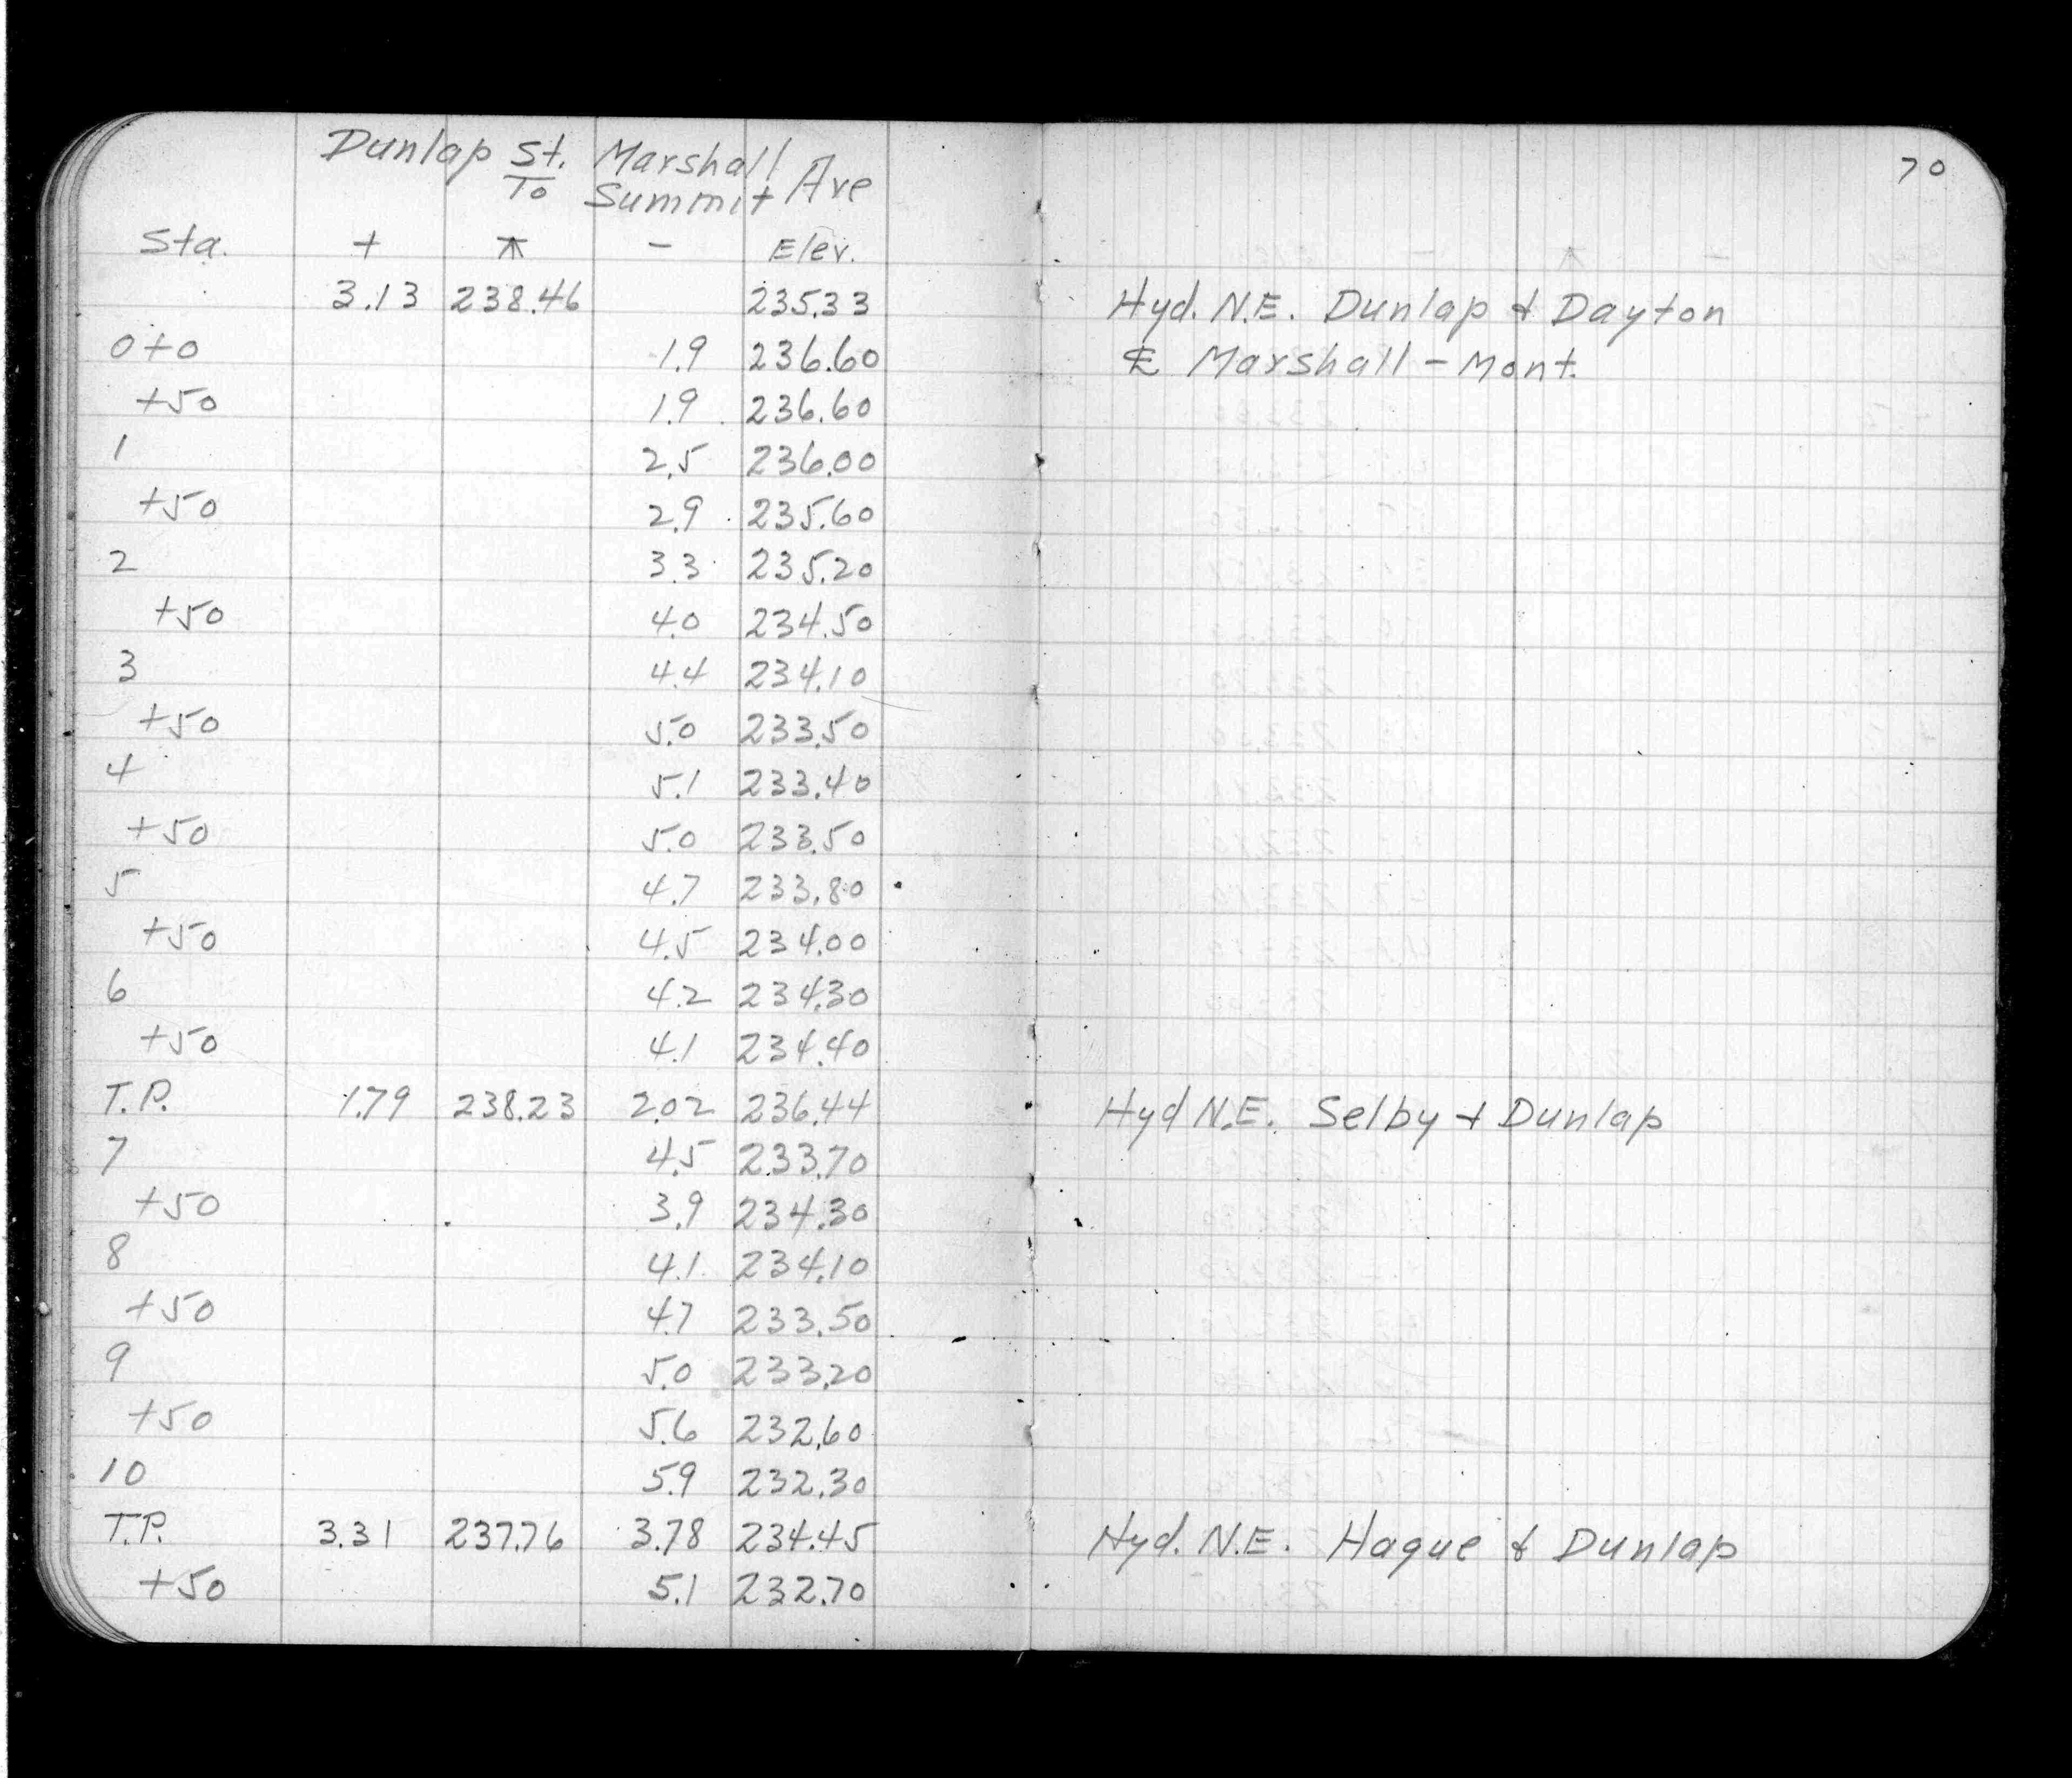 70
Dunlap St. Marshall Ave
To Summit
Sta. + ⊼ - Elev.
3.13 238.46 235.33 Hyd. N.E. Dunlap & Dayton
0+0 1.9 236.60 ℄ Marshall - Mont.
+50 1.9 236.60
1 2.5 236.00
+50 2.9 235.60
2 3.3 235.20
+50 4.0 234.50
3 4.4 234.10
+50 5.0 233.50
4 5.1 233.40
+50 5.0 233.50
5 4.7 233.80
+50 4.5 234.00
6 4.2 234.30
+50 4.1 234.40
T.P. 1.79 238.23 2.02 236.44 Hyd N.E. Selby & Dunlap
7 4.5 233.70
+50 3.9 234.30
8 4.1 234.10
+50 4.7 233.50
9 5.0 233.20
+50 5.6 232.60
10 5.9 232.30
T.P. 3.31 237.76 3.78 234.45 Hyd. N.E. Hague & Dunlap
+50 5.1 232.70